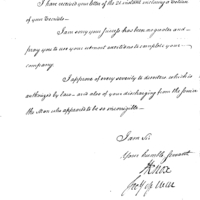 I have received your letter of the 21 instant enclosing a return
of your Recruits—
I am sorry your success has been no greater and
pray you to use your utmost exertions to complete your
company.
I approve of every severity to deserters which is
authorized by law— and also of your discharging from the service
the Man who appears to be so
I am Sir
Your humble servant
H Knox
Secy of War